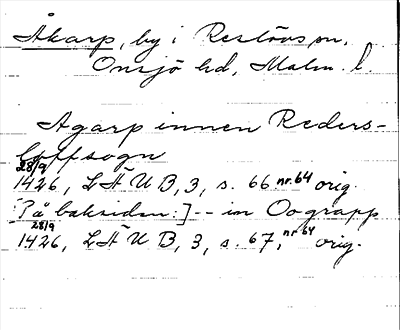 Åkarp, by i Reslövs sn,
Onsjö hd, Malm. l.
Agarp innen Reders-
löffsogn
28/9
1426, LÄUB, 3, s. 66 nr. 64 orig.
[På baksidan:] -- im Oograpp
28/9
1426, LÄUB, 3, s. 67, nr. 64 orig.